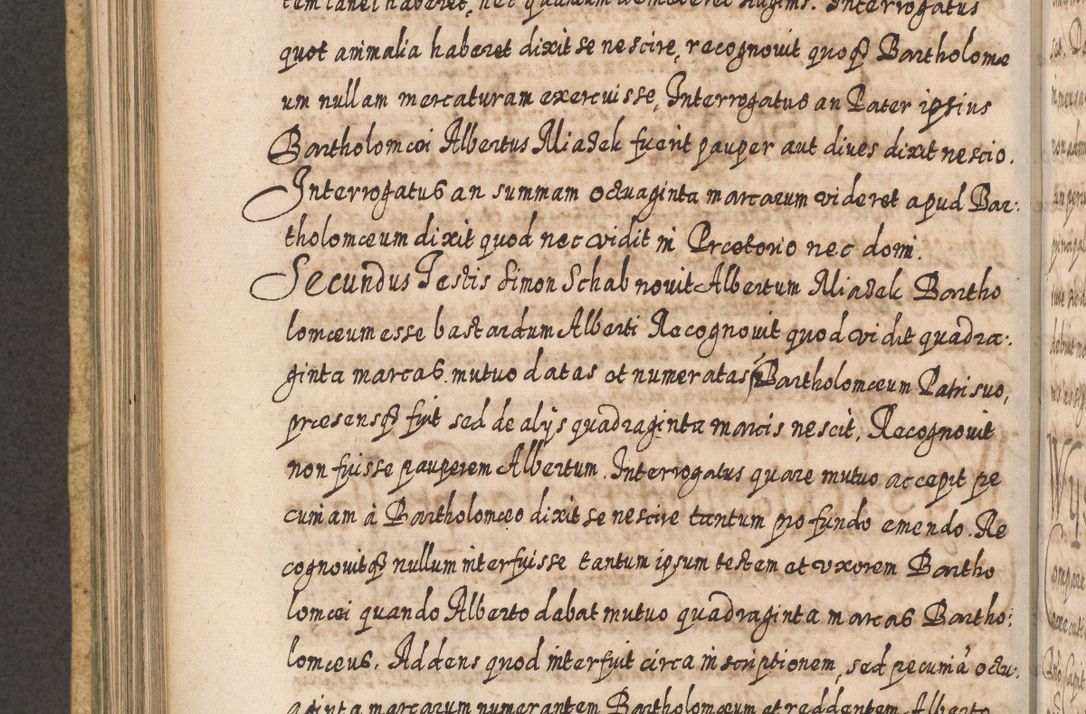 quot animalia haberet dixit se nescire, recognovit quoq Bartholomæ
um nullam mercaturam exercuisse, Interrogatus an Pater ipsius
Bartholomæi Albertus Miasek fuerit pauper aut dives dixit nescio.
Interrogatus an summam octuaginta marcarum videret apud Bar:
tholomæum dixit quod nec vidit in Prætorio nec domi.
Secundus Testis Simon Schab novit Albertum Miasek Bartho
lomæum esse bastardum Alberti Recognovit quod vidit quadra:
ginta marcas mutuo datas et numeratas p Bartholomæum Patri suo,
præsensq fuit sed de alijs quadraginta marcis nescit, Recognovit
non fuisse pauperem Albertum. Interrogatus quare mutuo accepit pe
cuniam à Bartholomæo dixit se nescire tantum pro fundo emendo. Re
cognovitq nullum interfuisse tantum ipsum testem et uxorem Bartho
lomæi quando Alberto dabat mutuo quadraginta marcas Bartho:
lomæus. Addens quod interfuit circa inscriptionem, sed pecuniā octu:
aginta marcarum numerantem Bartholomæum et reddentem Alberto